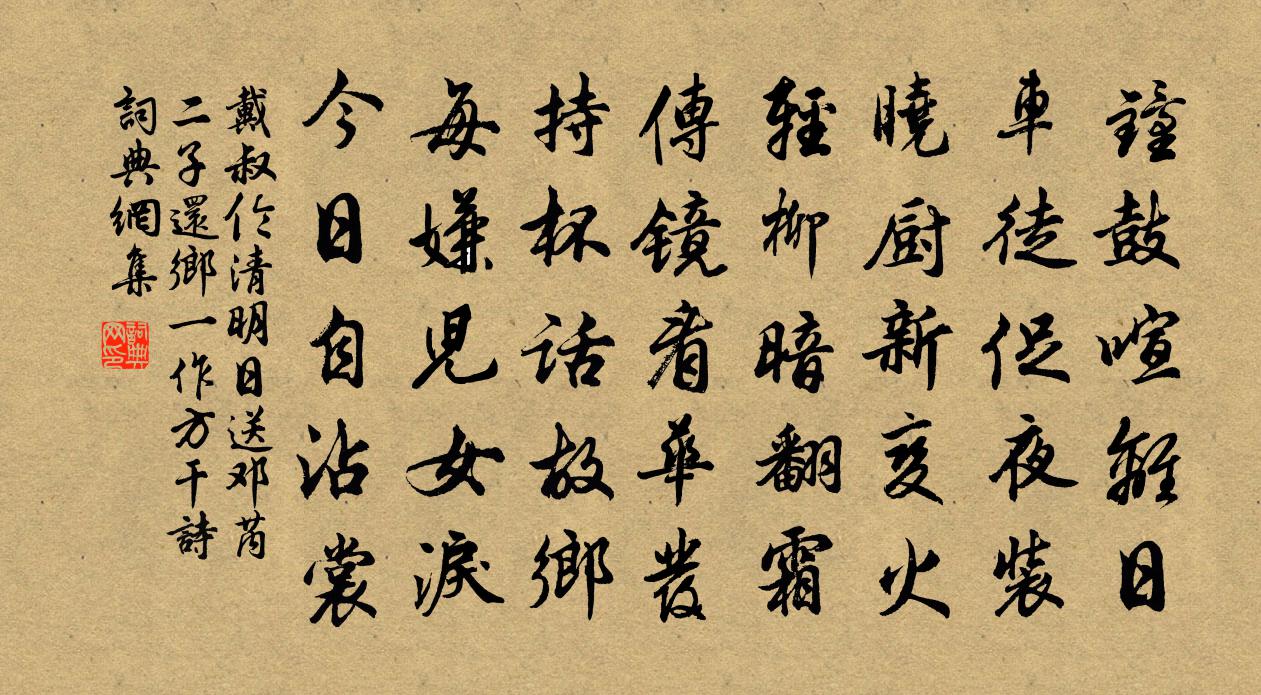 鐘鼓喧離日
車徒促夜裝
曉厨新变火
輕柳暗翻霜
傳鏡看華發
持杯話故鄉
每嫌兒女淚
今日自沾裳
戴叔伦清明日送邓芮
二子還鄉一作方干詩
詞典網集
詞典网印